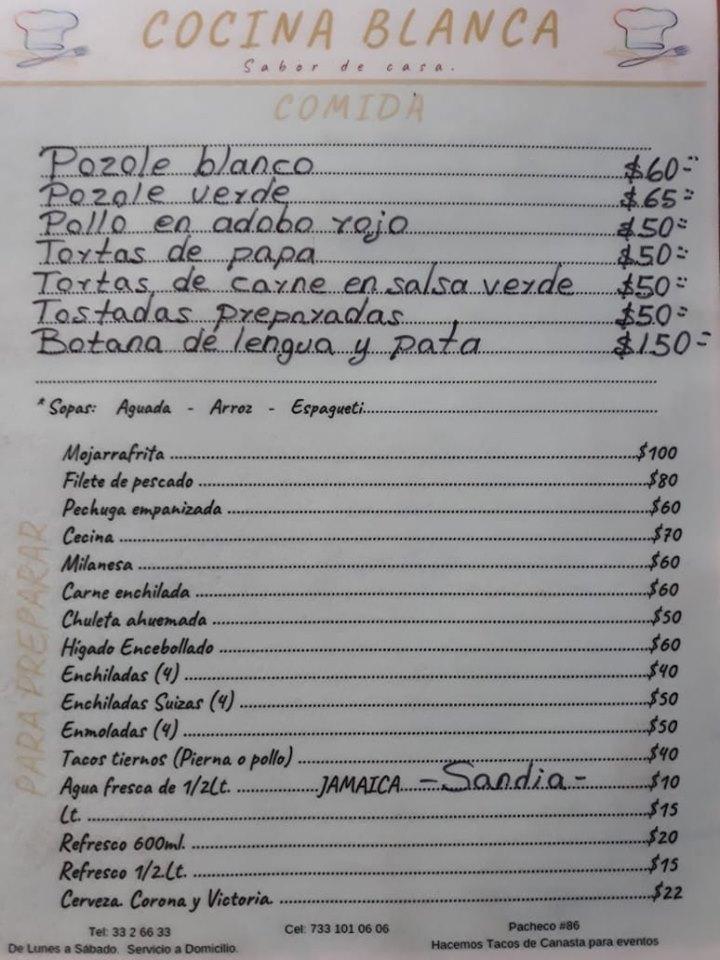 COCINA BLANCA
Sabor de casa.
COMIDA
Pozole blanco $60=
Pozole verde $65=
Pollo en adobo rojo $50=
Tortas de papa $50=
Tortas de carne en salsa verde $50=
Tostadas preparadas $50=
Botana de lengua y pata $150=
*Sopas: Aguada - Arroz - Espagueti
PARA PREPARAR
Mojarrafrita $100
Filete de pescado $80
Pechuga empanizada $60
Cecina $70
Milanesa $60
Carne enchilada $60
Chuleta ahuemada $50
Higado Encebollado $60
Enchiladas (4) $40
Enchiladas Suizas (4) $50
Enmoladas (4) $50
Tacos tiernos (Pierna o pollo) $40
Agua fresca de 1/2Lt. JAMAICA -Sandia- $10
Lt. $15
Refresco 600ml. $20
Refresco 1/2.Lt. $15
Cerveza. Corona y Victoria. $22
Tel: 33 2 66 33 Cel: 733 101 06 06 Pacheco #86
De Lunes a Sábado. Servicio a Domicilio. Hacemos Tacos de Canasta para eventos